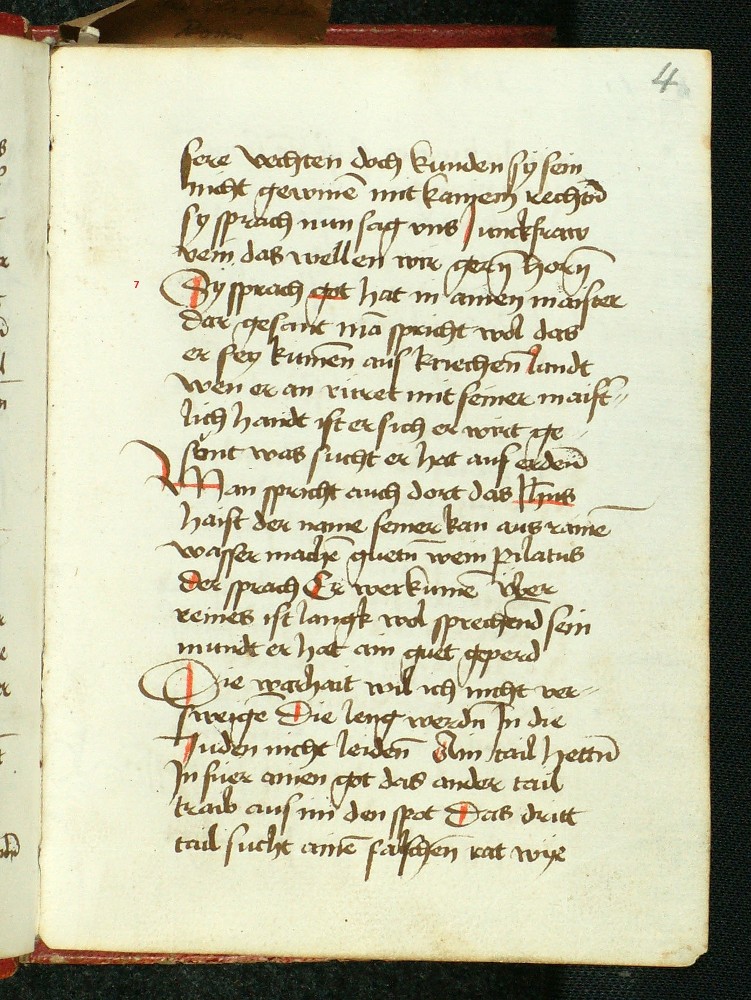 4
sere vechten doch kunden sy sein
nicht gewinnē mit kainem rechtn̄
sy sprach nun sag vns Junckfraw
vein das wellen wir gern̄ horn̄
7
Sy sprach got hat in ainen maister
dar gesant mā spricht wol das
er sey kumen aus kriechen landt
wen er an rirret mit seiner maist
lich handt ist er sich er wirt ge
sunt was sucht er hat auf erden̄
Man spricht auch dort das Jhūs
haist der name seiner kan aus rainē
wasser machē guetn̄ wein Pilatus
der sprach Er werkumē Vber
reines ist langk wol sprechend sein
mundt er hat ain guet geperd
Die warhait wil ich nicht ver-
sweigē Die leng werdn̄ In die
Juden nicht leiden̄ Ain tail hettn̄
In fuer ainen got das ander tail
traib aus im den spot Das dritt
tail sucht ainē falschen̄ rat wye